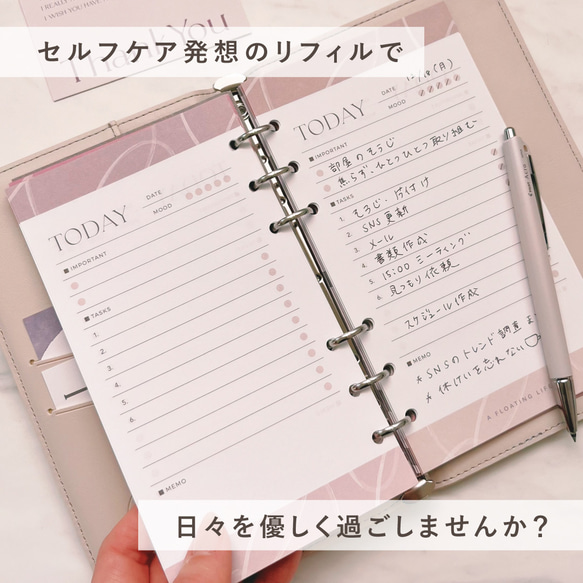 I WISH YOU
Thank You
セルフケア発想のリフィルで
TODAY
DATE
MOOD
IMPORTANT
TASKS
1.
2.
3.
4.
5.
6.
MEMO
TODAY
DATE 12/18(月)
MOOD
IMPORTANT
部屋のそうじ
焦らず、ひとつひとつ取り組む
TASKS
1. そうじ、片付け
2. SNS更新
3. メール
4. 書類作成
5. 15:00 ミーティング
6. 見つもり依頼
スケジュール作成
MEMO
* SNSのトレンド調査
* 休けいを忘れない
A FLOATING LIFE
日々を優しく過ごしませんか？